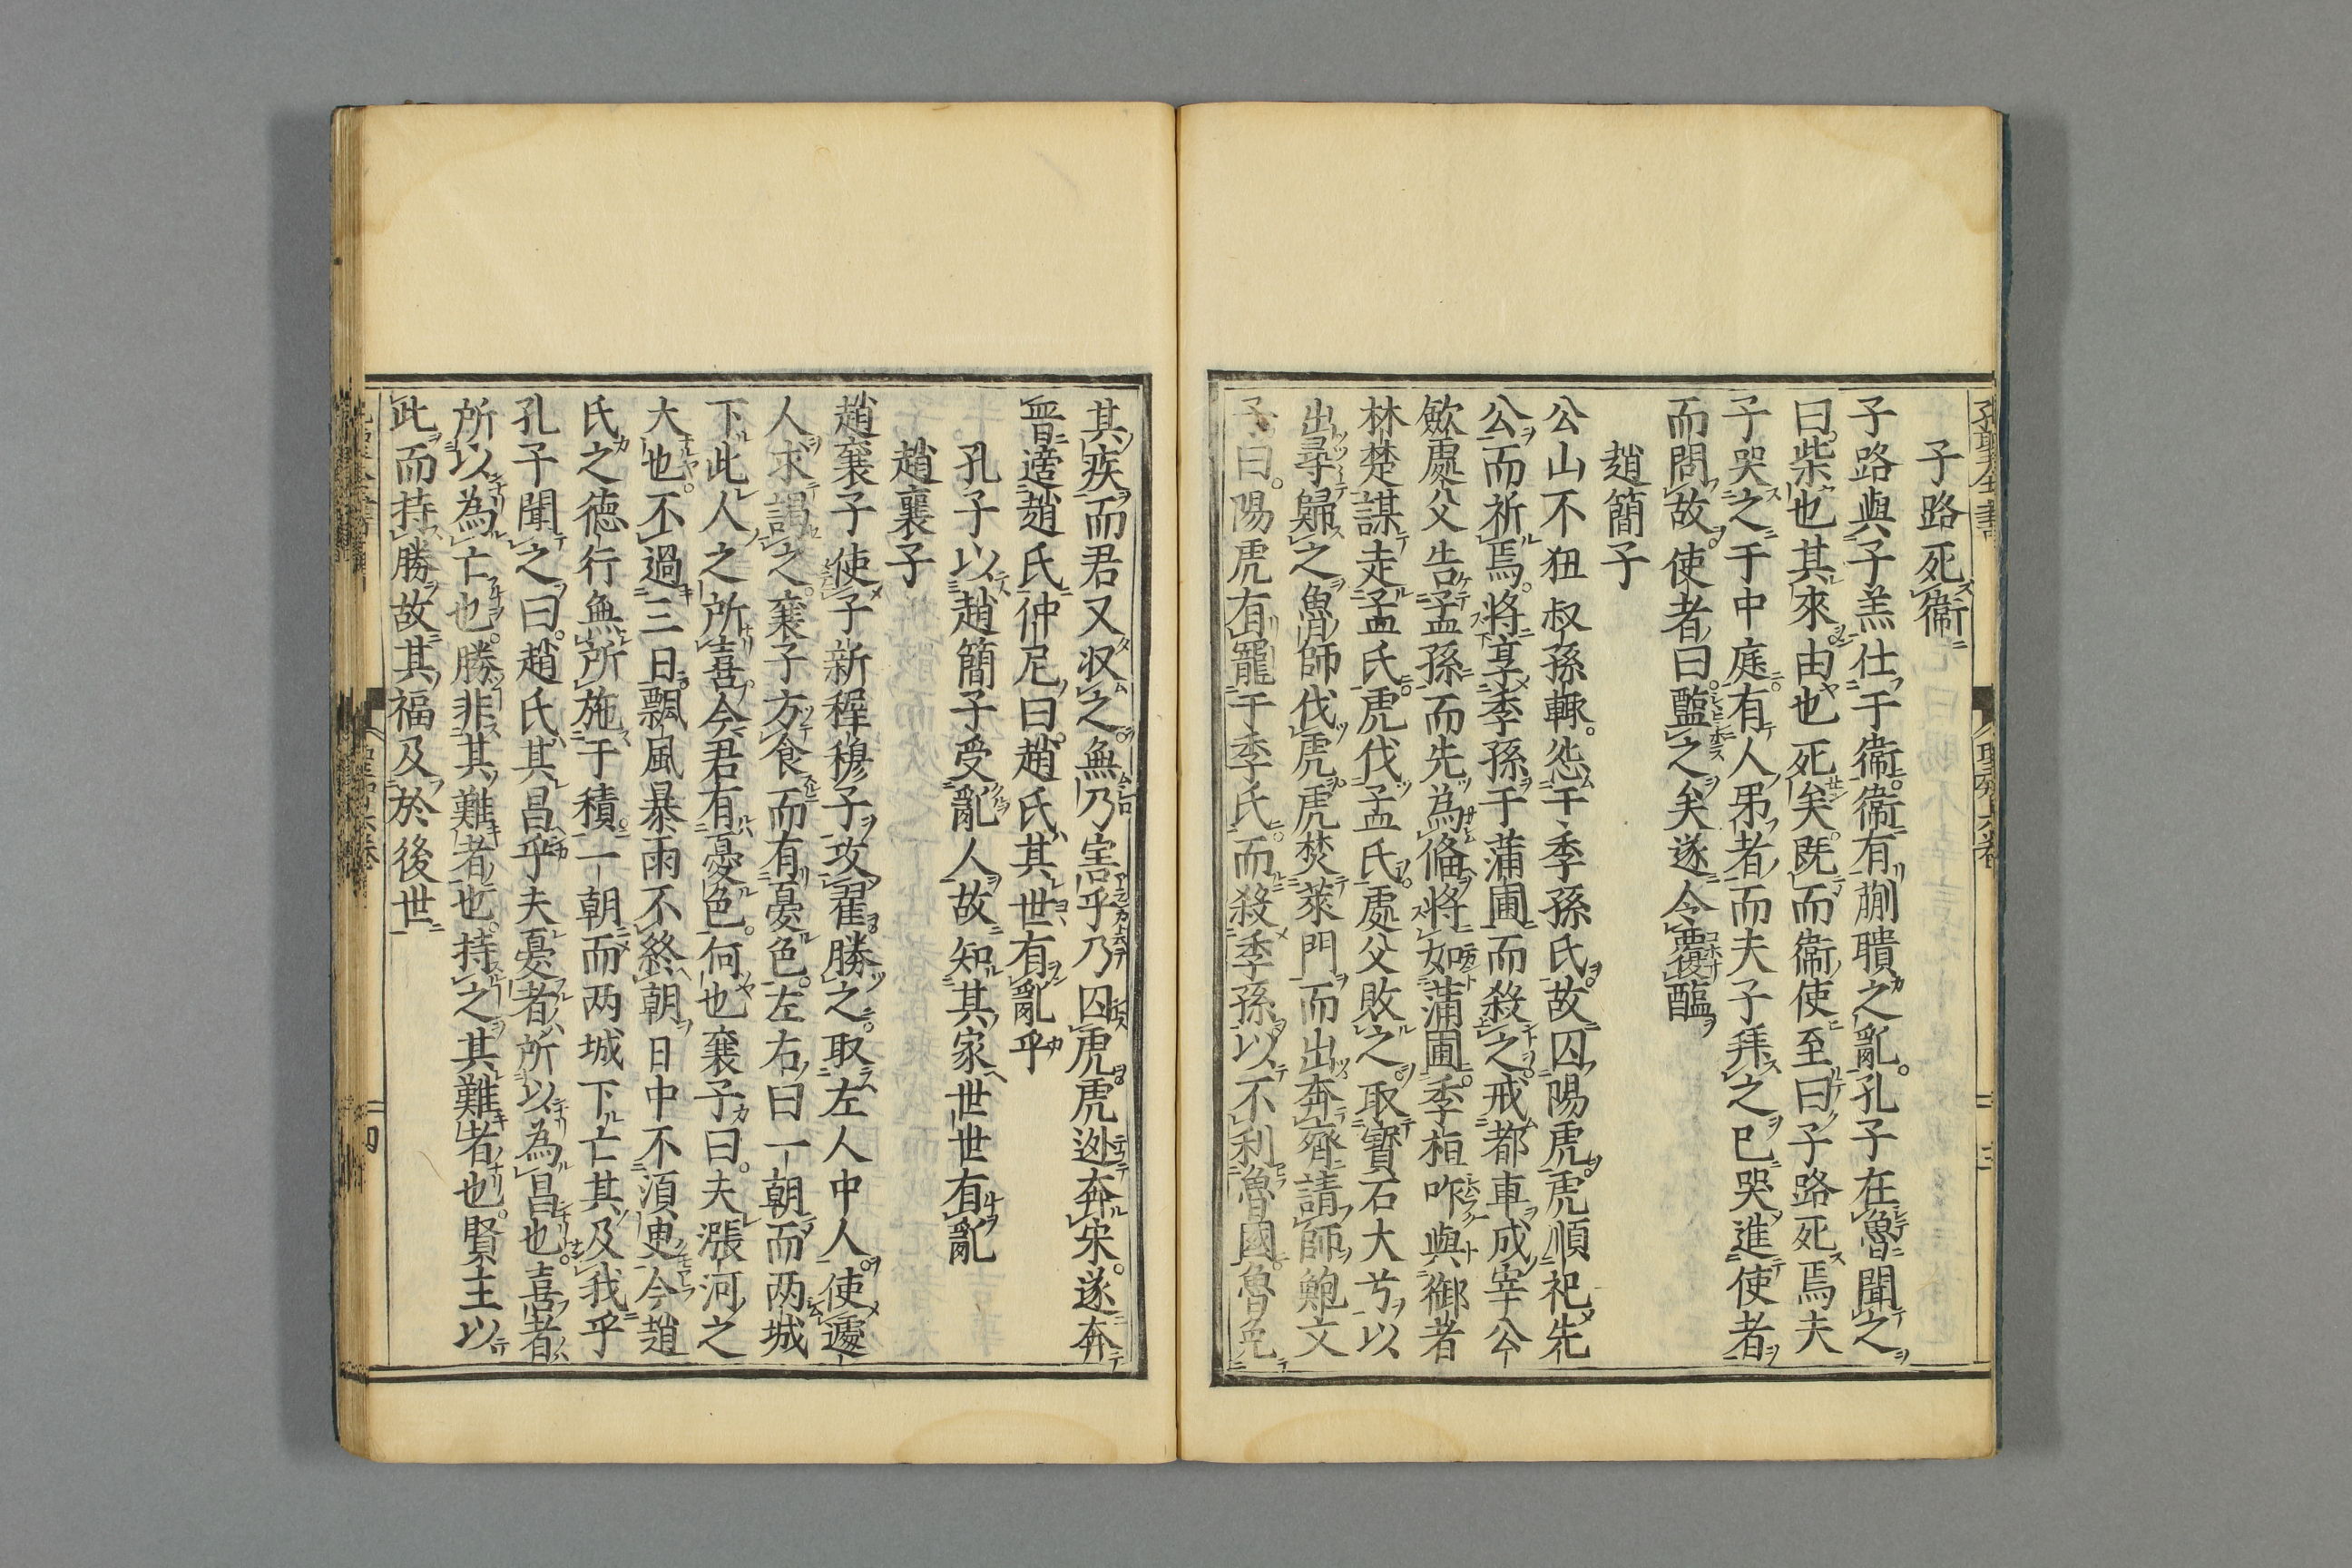 子路死衞
子路與子羔仕于衞衞有蒯聵之亂孔子在魯聞之
曰柴也其來由也死矣既而衞使至曰子路死焉夫
子哭之于中庭有人弔者而夫子拜之已哭進使者
而問故使者曰醢之矣遂令覆醢
趙簡子
公山不狃叔孫輙怨于季孫氏故囚陽虎虎順祀先
公而祈焉將享季孫于蒲圃而殺之戒都車成宰公
歛處父告孟孫而先為備將如蒲圃季桓咋與御者
林楚謀走孟氏虎伐孟氏處父敗之取寳石大芎以
出尋歸之魯師伐虎虎焚萊門而出奔齊請師鮑文
子曰陽虎有寵于季氏而殺季孫以不利魯國魯免
其疾而君又収之無乃害乎乃囚虎虎迯奔宋遂奔
晉適趙氏仲尼曰趙氏其世有亂乎
孔子以趙簡子受亂人故知其家世世有亂
趙襄子
趙襄子使子新穉穆子攻翟勝之取左人中人使遽
人求謁之襄子方食而有憂色左右曰一朝而两城
下此人之所喜今君有憂色何也襄子曰夫漲河之
大也不過三日飄風暴雨不終朝日中不湏臾今趙
氏之徳行無所施于積一朝而两城下亡其及我乎
孔子聞之曰趙氏其昌乎夫憂者所以為昌也喜者
所以為亡也勝非其難者也持之其難者也賢主以
此而持勝故其福及於後世